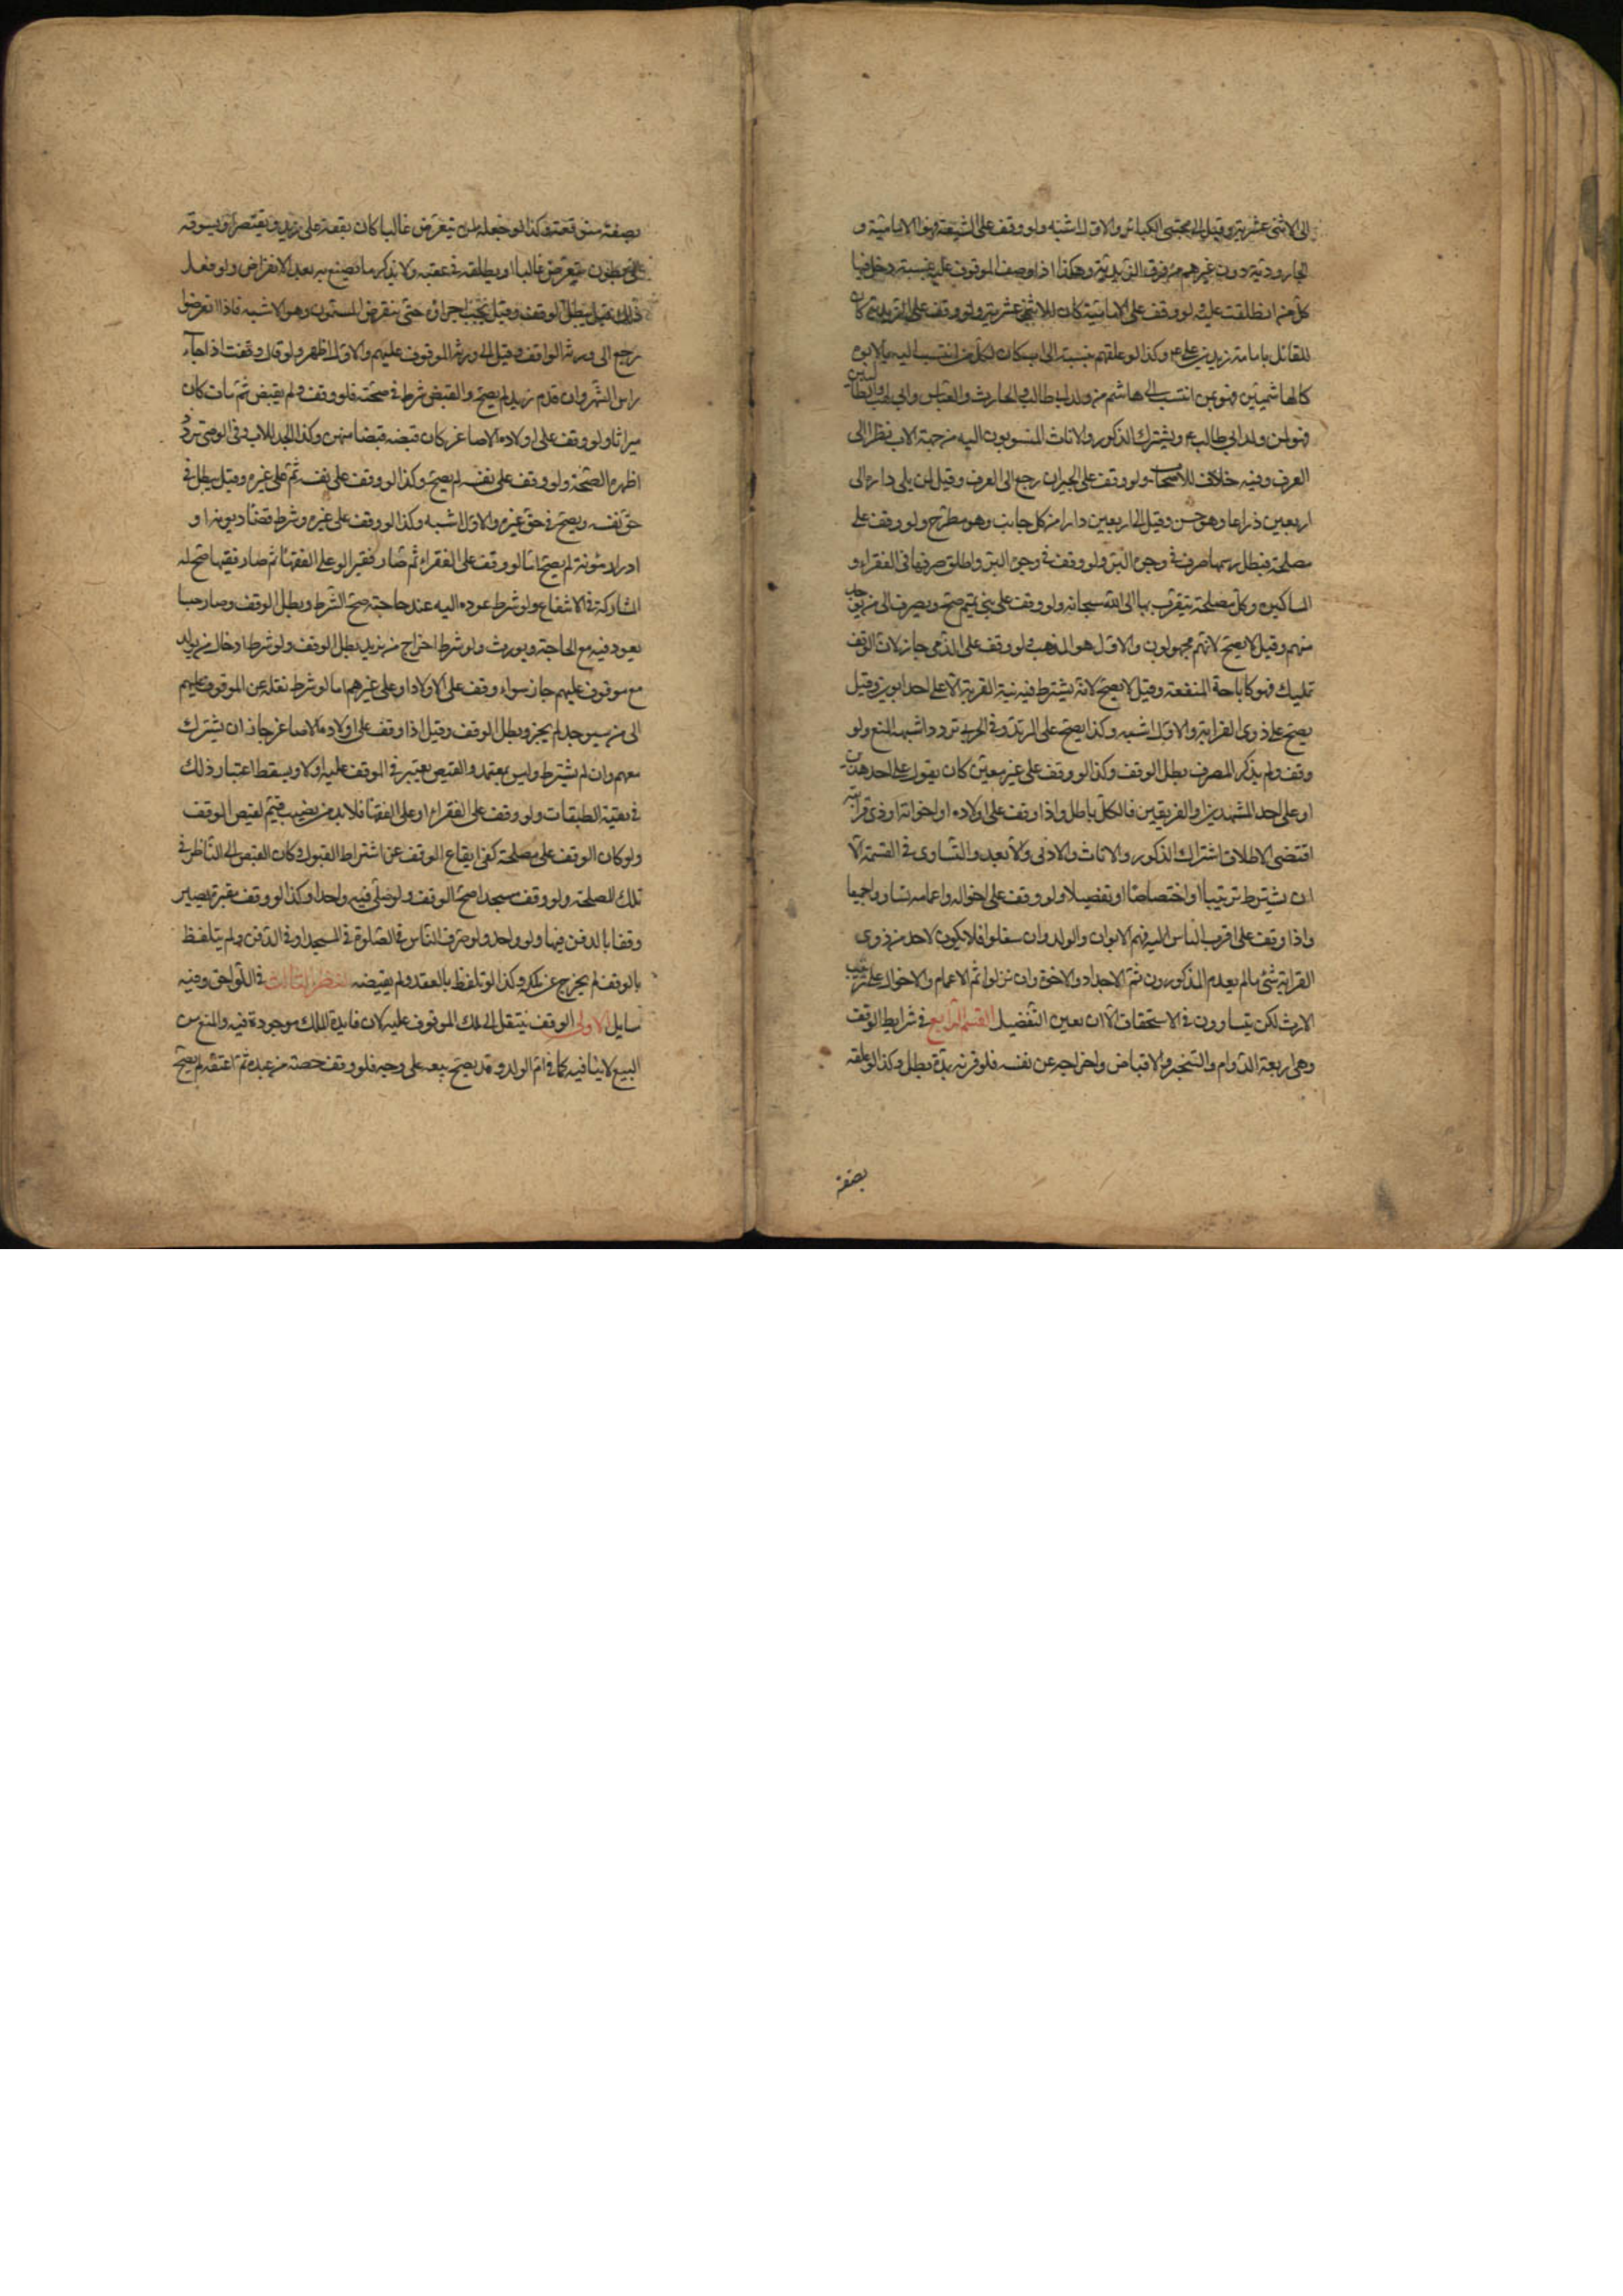 الى الاثنى عشرية وقيل الى مجتنبى الكبائر والاول اشبه ولو وقف على الشيعة فهو الامامية و
الجارودية دون غيرهم من فرق الزيدية وهكذا اذا وصف الموقوف عليه بنسبة دخل فيها
كل من اطلقت عليه فلو وقف على الامامية كان للاثنى عشرية ولو وقف على الزيدية كان
للقائل بامامة زيد بن علي ع وكذا لو علقهم بنسبة الى اب كان لكل من انتسب اليه بالابوة
كالهاشميين فهو لمن انتسب الى هاشم من ولد ابي طالب والحارث والعباس وابي لهب والطالبيين
فهو لمن ولد ابي طالب ع ويشترك الذكور والاناث المنسوبون اليه من جهة الاب نظرا الى
العرف وفيه خلاف للاصحاب ولو وقف على الجيران رجع الى العرف وقيل لمن يلى داره الى
اربعين ذراعا وهو حسن وقيل الى اربعين دارا من كل جانب وهو مطرح ولو وقف على
مصلحة فبطل رسمها صرف فى وجوه البر ولو وقف فى وجوه البر واطلق صرفها فى الفقراء و
المساكين وكل مصلحة يتقرب بها الى الله سبحانه ولو وقف على بنى تميم صح ويصرف الى من يوجد
منهم وقيل لا يصح لانهم مجهولون والاول هو المذهب ولو وقف على الذمى جاز لان الوقف
تمليك فهو كاباحة المنفعة وقيل لا يصح لانه يشترط فيه نية القربة الا على احد ابويه وقيل
يصح على ذوى القرابة والاول اشبه وكذا يصح على المرتد وفى الحربى تردد اشبهه المنع ولو
وقف ولم يذكر المصرف بطل الوقف وكذا لو وقف على غير معين كان يقول على احد هذين
او على احد المشهدين او الفريقين فالكل باطل واذا وقف على اولاده او اخوانه او ذى قرابته
اقتضى الاطلاق اشتراك الذكور والاناث والادنى والابعد والتساوى فى القسمة الا
ان يشترط ترتيبا او اختصاصا او تفضيلا ولو وقف على اخواله واعمامه تساووا جميعا
واذا وقف على اقرب الناس اليه فهم الابوان والولد وان سفلوا فلا يكون لاحد من ذوى
القرابة شئ ما لم يعدم المذكورون ثم الاجداد والاخوة وان نزلوا ثم الاعمام والاخوال على ترتيب
الارث لكن يتساوون فى الاستحقاق الا ان يعين التفضيل القسم الرابع فى شرايط الوقف
وهى اربعة الدوام والتنجيز والاقباض واخراجه عن نفسه فلو قرنه بمدة بطل وكذا لو علقه
بصفة
بصفة متوقعة وكذا لو جعله لمن ينقرض غالبا كان يقفه على زيد ويقتصر او يسوقه
على بطون ينقرض غالبا او يطلقه فى عقبه ولا يذكر ما يصنع به بعد الانقراض ولو فعل
ذلك قيل يبطل الوقف وقيل يجب اجراؤه حتى ينقرض المسمون وهو الاشبه فاذا انقرضوا
رجع الى ورثة الواقف وقيل الى ورثة الموقوف عليهم والاول اظهر ولو قال وقفت اذا جاء
راس الشهر وان قدم زيد لم يصح والقبض شرط فى صحته فلو وقف ولم يقبض ثم مات كان
ميراثا ولو وقف على اولاده الاصاغر كان قبضه قبضا منهم وكذا الجد للاب وفى الوصى تردد
اظهره الصحة ولو وقف على نفسه لم يصح وكذا لو وقف على نفسه ثم على غيره وقيل يبطل فى
حق نفسه ويصح فى حق غيره والاول اشبه وكذا لو وقف على غيره وشرط قضاء ديونه او
ادرار مئونته لم يصح اما لو وقف على الفقراء ثم صار فقيرا او على الفقهاء ثم صار فقيها صح له
المشاركة فى الانتفاع ولو شرط عوده اليه عند حاجته صح الشرط وبطل الوقف وصار حبسا
يعود فيه مع الحاجة ويورث ولو شرط اخراج من يريد بطل الوقف ولو شرط ادخال من يولد
مع موقوف عليهم جاز سواء وقف على الاولاد او على غيرهم اما لو شرط نقله عن الموقوف عليهم
الى من سيوجد لم يجز وبطل الوقف وقيل اذا وقف على اولاده الاصاغر جاز ان يشترك
معهم وان لم يشترط وليس بمعتمد والقبض يعتبر فى الموقوف عليه اولا ويسقط اعتبار ذلك
فى بقية الطبقات ولو وقف على الفقراء او على الفقهاء فلا بد من نصيب قيم لقبض الوقف
ولو كان الوقف على مصلحة كفى ايقاع الوقف عن اشتراط القبول وكان القبض الى الناظر فى
تلك المصلحة ولو وقف مسجدا صح الوقف ولو صلى فيه واحد وكذا لو وقف مقبرة تصير
وقفا بالدفن فيها ولو واحد ولو صرف الناس فى الصلوة فى المسجد او فى الدفن ولم يتلفظ
بالوقف لم يخرج عن ملكه وكذا لو تلفظ بالعقد ولم يقبضه النظر الثالث فى اللواحق وفيه
مسايل الاولى الوقف ينتقل الى ملك الموقوف عليه لان فايدة الملك موجودة فيه والمنع من
البيع لا ينافيه كما فى ام الولد وقد يصح بيعه على وجه فلو وقف حصة من عبده ثم اعتقه لم يصح